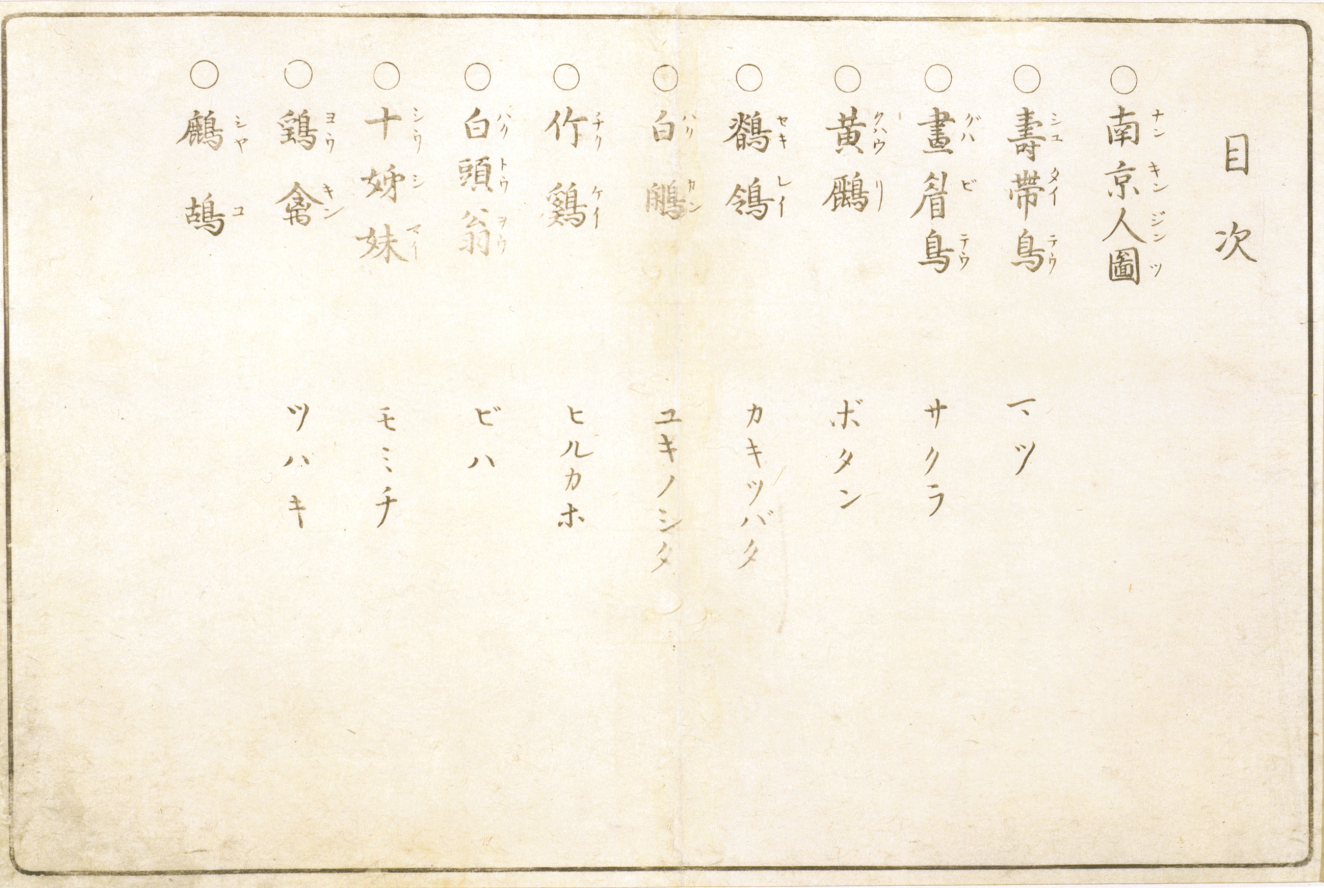 目次
○南京人圖 ナンキンジンツ
○壽帶鳥 シユタイテウ マツ
○畫眉鳥 グハビテウ サクラ
○黃鸝 クハウリ ボタン
○鶺鴒 セキレイ カキツバタ
○白鷴 ハリカン ユキノシタ
○竹鷄 チクケイ ヒルカホ
○白頭翁 ハクトウヲウ ビハ
○十姊妹 シウシマイ モミチ
○鷂禽 ヨウキン ツハキ
○鷓鴣 シヤコ